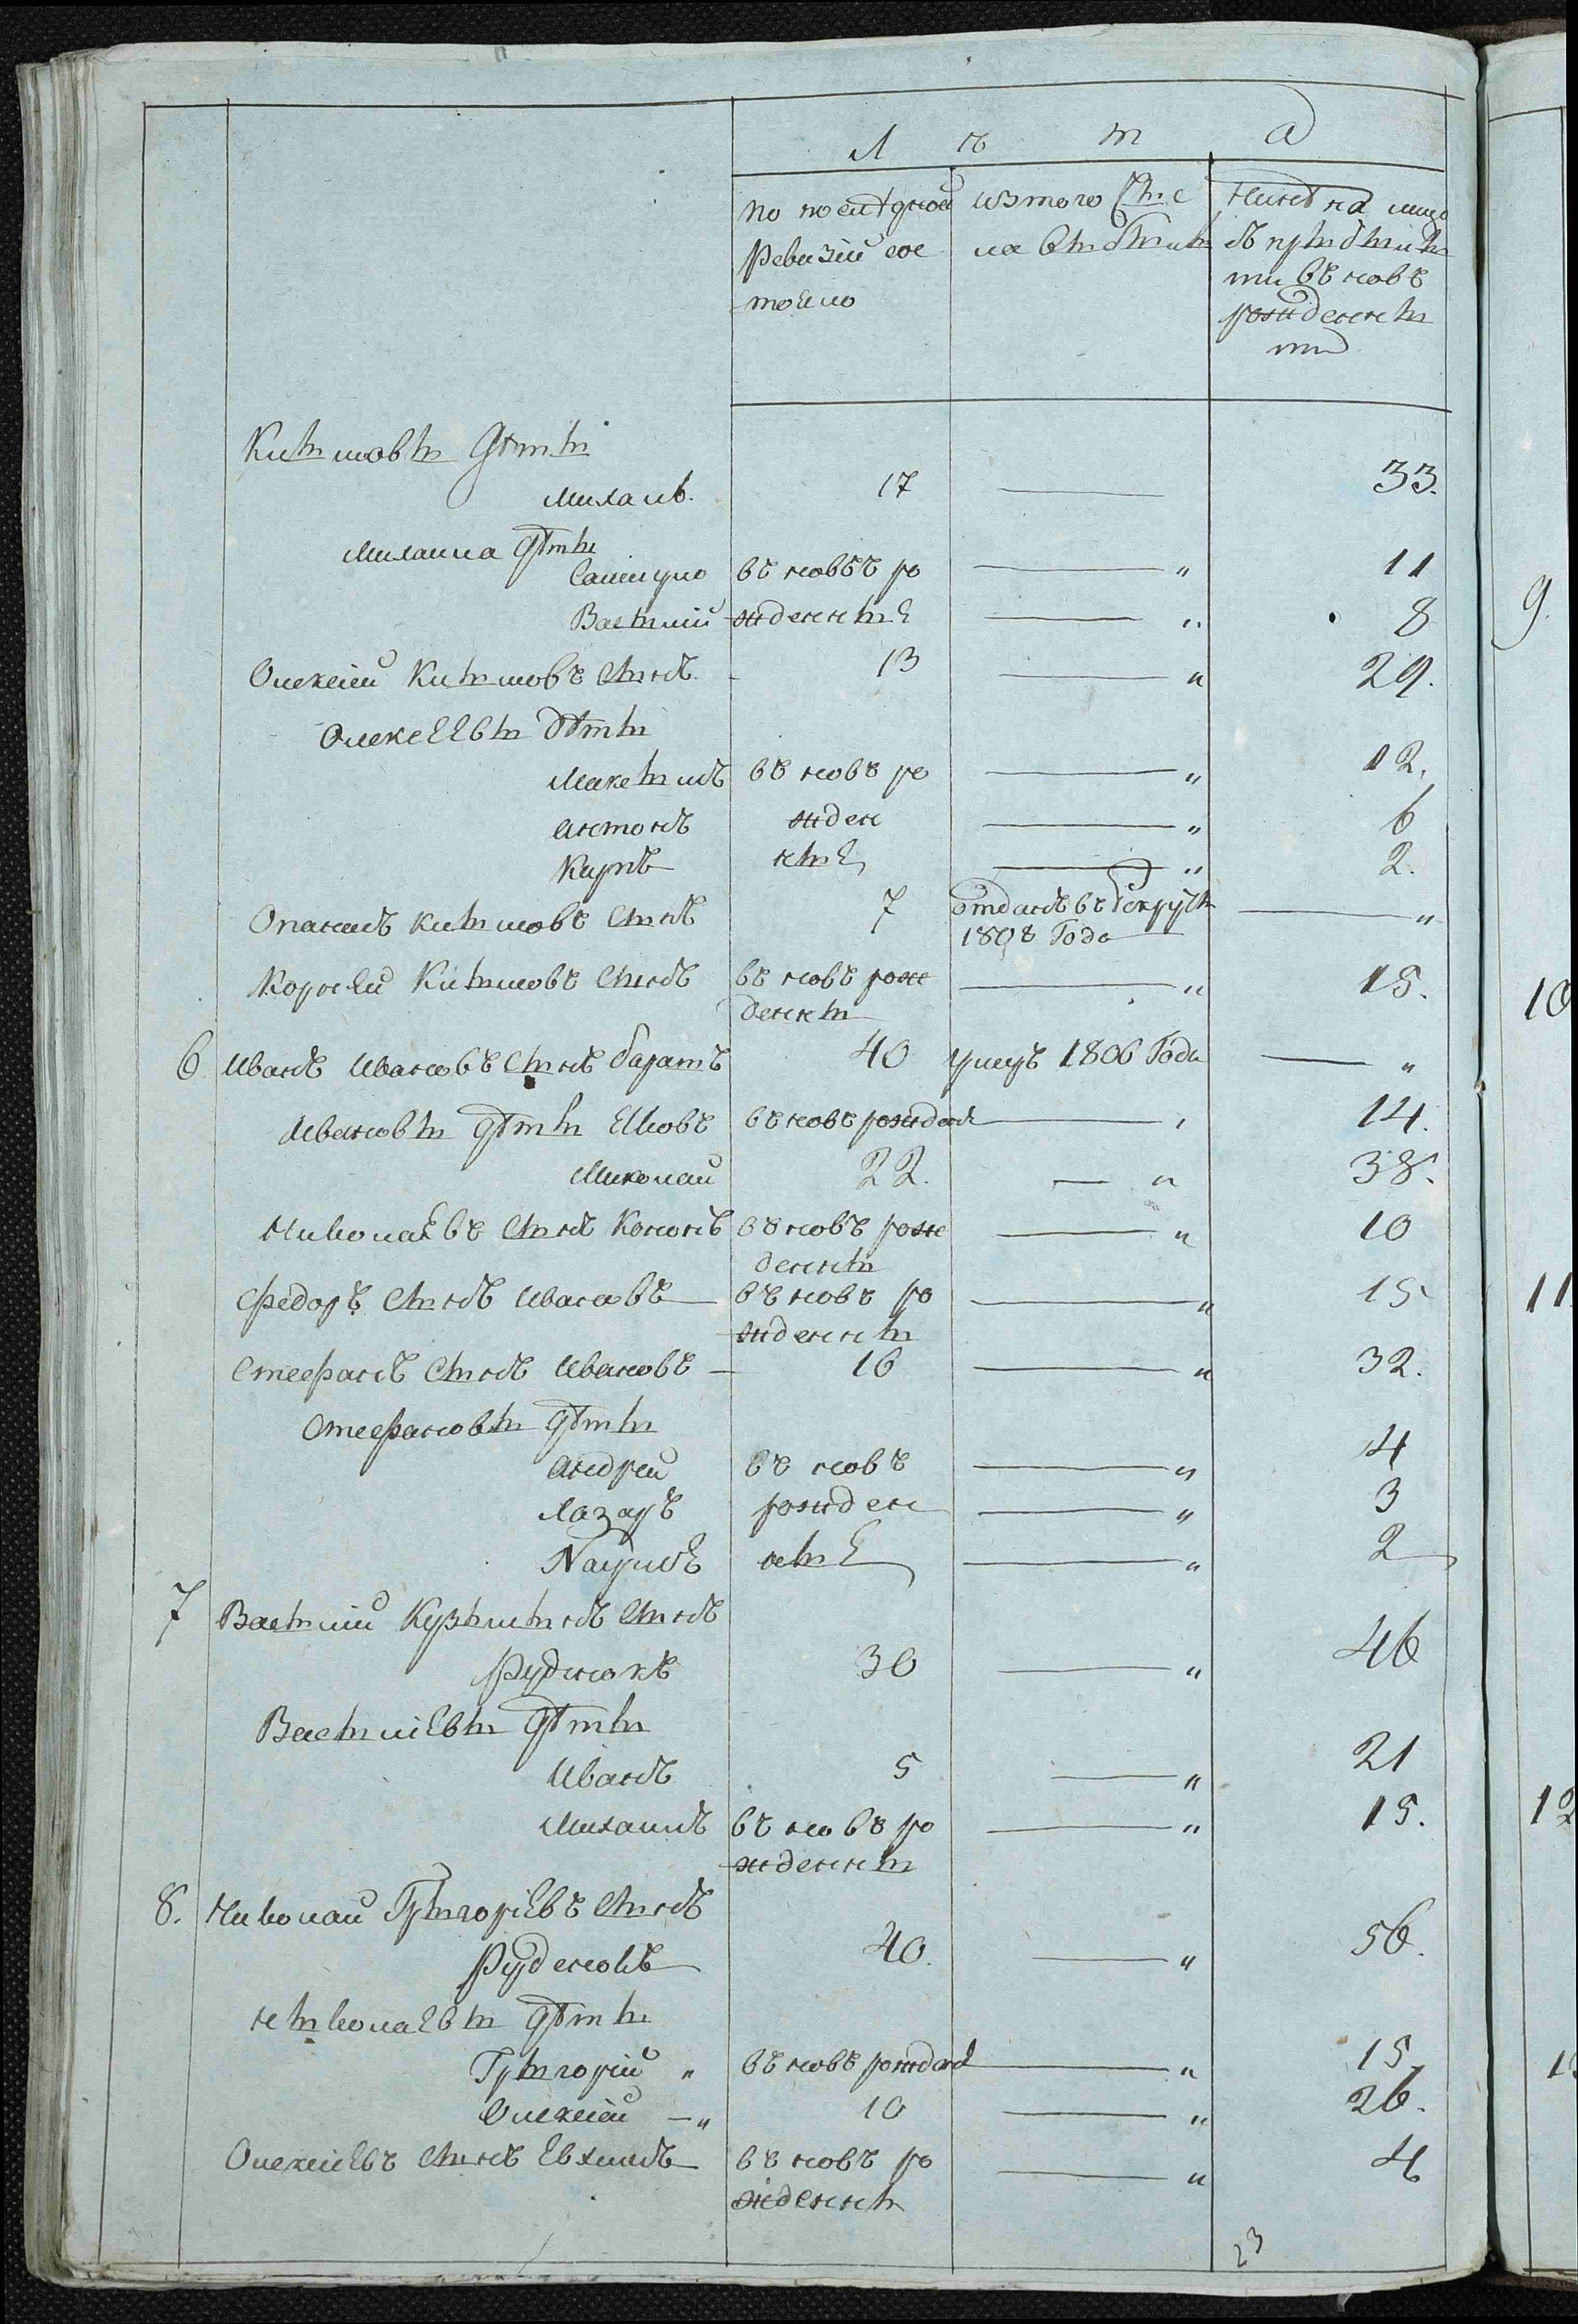 Л ѣ т а
по последной изтого Чис Нинѣ на лицо
Ревизіи сос ла выбыли съ прыбылы
тояло ми въ новъ
рожденны
ми
Килыповы дѣты
Михаил 17 — 33.
Михаила дѣты
Самуило въ новъ ро — „ 11
Василій жденные — „ 8
Олексій Килыповъ Сынъ 13 — „ 29.
Олексеевы дѣты
Максымъ въ новъ ро — „ 12.
Антонъ жден — „ 6
Карпъ ные — „ 2.
Опанасъ Килыповъ Сынъ 7 отданъ въ Рекруты — „
1808 Года
Корней Килыповъ Сынъ въ новъ рож — „ 15.
денны
6. Иванъ Ивановъ Сынъ 40 умеръ 1806 Года — „
Ивановы дѣты Яковъ въ новъ рожден — „ 14.
Миколай 22. — „ 38.
Николаевъ Сынъ Кононъ въ новъ рож — „ 10
денны
Федоръ Сынъ Ивановъ въ новъ ро — „ 15
жденны
Стефанъ Сынъ Ивановъ — 16 — „ 32.
Стефановы дѣты
Андрей въ новъ — „ 4
Лазаръ рожден — „ 3
Наумъ ные — „ 2
7 Василій Кузмынъ Сынъ
Руднюкъ 30 — „ 46
Василіевы дѣты
Иванъ 5 — „ 21
Михаилъ въ новъ ро — „ 15.
жденны
8. Николай Грыгоріевъ Сынъ
Руденокъ 40. — „ 56.
Ныколаевы дѣты
Грыгорій „ въ новъ рожден — „ 15
Олексій — „ 10 — „ 26.
Олексіевъ Сынъ Евхимъ въ новъ ро — „ 4
жденны
23
9.
10
11
12